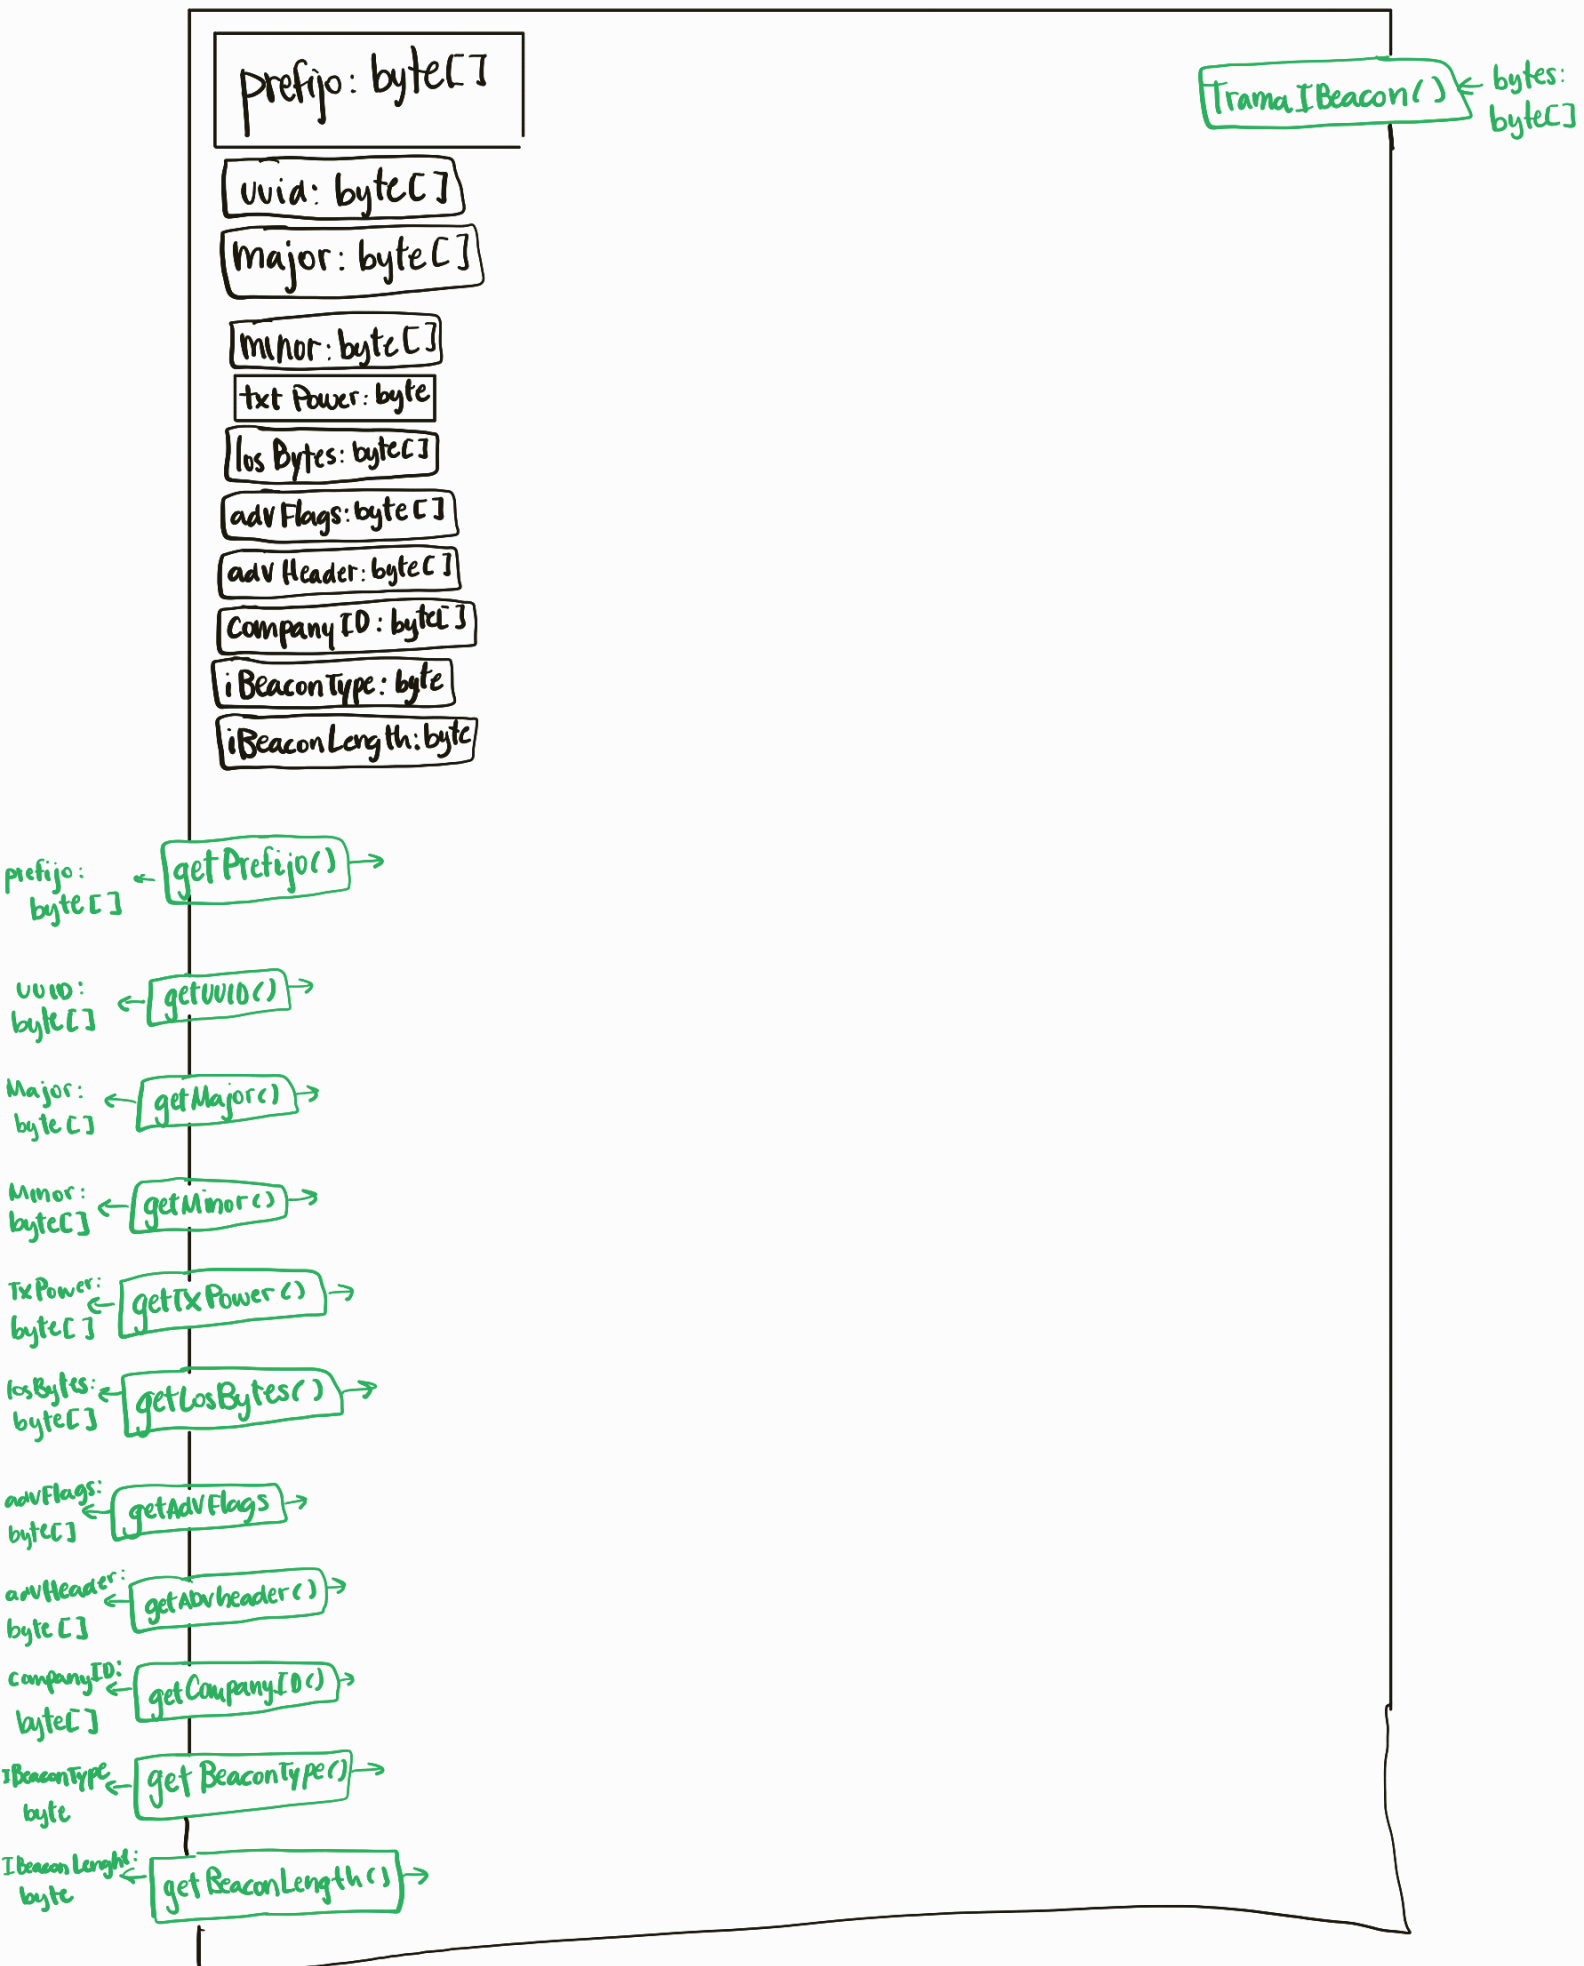 prefijo: byte[]
TramaIBeacon()
bytes:
byte[]
uuid: byte[]
major: byte[]
minor: byte[]
txt Power: byte
los Bytes: byte[]
adv Flags: byte[]
adv Header: byte[]
companyID: byte[]
iBeaconType: byte
iBeaconLength: byte
prefijo:
byte[]
getPrefijo()
UUID:
byte[]
getUUID()
Major:
byte[]
getMajor()
Minor:
byte[]
getMinor()
TxPower:
byte[]
getTxPower()
losBytes:
byte[]
getLosBytes()
advFlags:
byte[]
getAdvFlags
advHeader:
byte[]
getADvheader()
companyID:
byte[]
getCompanyID()
IBeaconType
byte
getBeaconType()
IBeaconLenght:
byte
getBeaconLength()